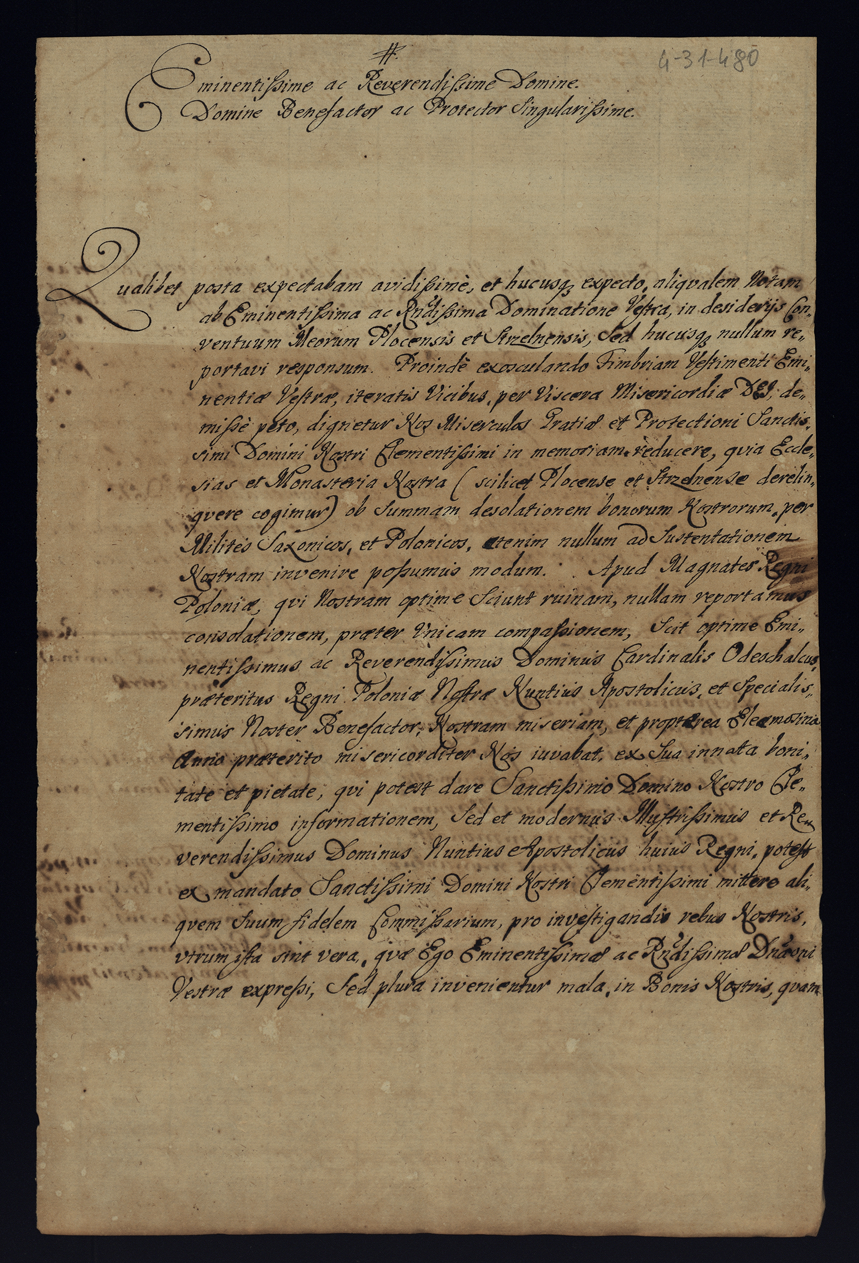 #
4-31-480
Eminentissime ac Reverendissime Domine.
Domine Benefactor ac Protector Singularissime.
Qualibet posta expectabam avidissimè, et hucusq; expecto, aliqvalem Notam
ab Eminentissima ac Rndissima Dominatione Vestra, in desiderijs Con„
ventuum Meorum Plocensis et Strzelnensis, Sed hucusq; nullum re„
portavi responsum. Proindè exosculando Fimbriam Vestimenti Emi„
nentiæ Vestræ, iteratis Vicibus, per Viscera Misericordiæ DEI de„
missè peto, dignetur Nos Miserculos Gratiæ et Protectioni Sanctis„
simi Domini Nostri Clementissimi in memoriam reducere, qvia Eccle„
sias et Monasteria Nostra (scilicet Plocense et Strzelnense derelin„
qvere cogimur) ob Summam desolationem bonorum Nostrorum, per
Milites Saxonicos, et Polonicos, etenim nullum ad Sustentationem
Nostram invenire possumus modum. Apud Magnates Regni
Poloniæ, qvi Nostram optime Sciunt ruinam, nullam reportamus
consolationem, præter Vnicam compassionem, Scit optimè Emi„
nentissimus ac Reverendissimus Dominus Cardinalis Odeschalcus,
præteritus Regni Poloniæ Nostræ Nuntius Apostolicus, et Specialis„
simus Noster Benefactor, Nostram miseriam, et proptærea Eleæmosina
Anno præterito misericorditer Nos iuvabat, ex Sua innata boni„
tate et pietate, qvi potest dare Sanctissimo Domino Nostro Cle„
mentissimo informationem, Sed et modernus Illustrissimus et Re„
verendissimus Dominus Nuntius Apostolicus huius Regni, potest
ex mandato Sanctissimi Domini Nostri Clementissimi mittere ali„
qvem Suum fidelem Commissarium, pro investigandis rebus Nostris,
vtrum ista sint vera, qvæ Ego Eminentissimæ ac Rndissimæ Dnaoni
Vestræ expressi, Sed plura invenientur mala, in Bonis Nostris, qvam